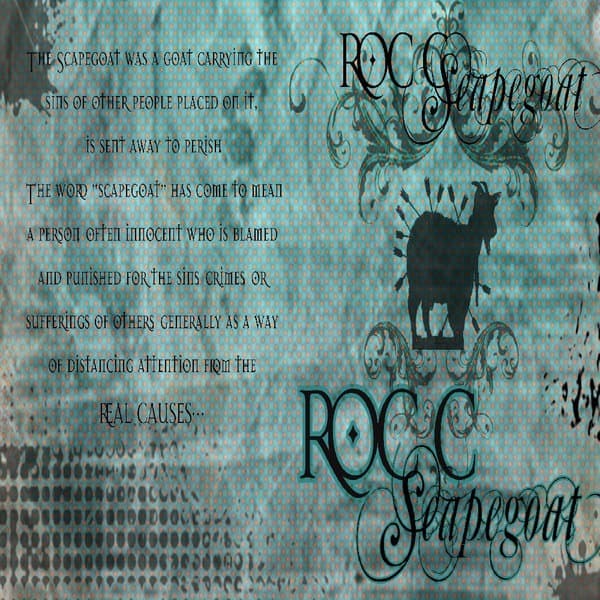 The Scapegoat was a goat carrying the
sins of other people placed on it,
is sent away to perish
The word "scapegoat" has come to mean
a person often innocent who is blamed
and punished for the sins crimes or
sufferings of others generally as a way
of distancing attention from the
REAL CAUSES...
ROC C
Scapegoat
ROC C
Scapegoat